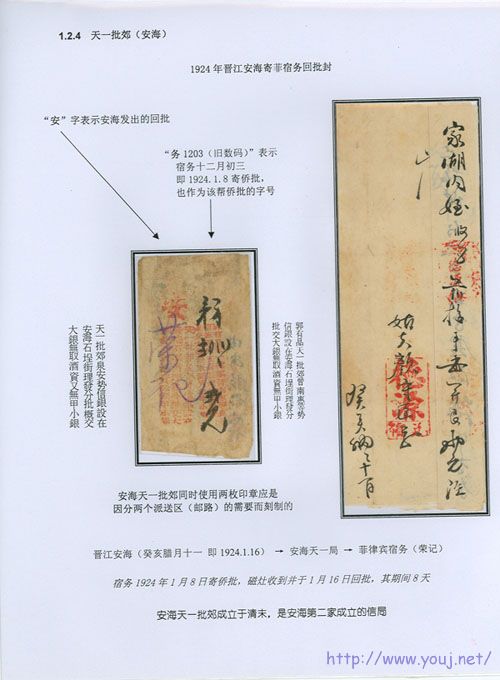 1.2.4 天一批郊（安海）
1924 年晋江安海寄菲宿务回批封
“安”字表示安海发出的回批
“务 1203（旧数码）”表示
宿务十二月初三
即 1924.1.8 寄侨批，
也作为该帮侨批的字号
天一批郊泉安势信銀設在
安海石埕街理發分批概交
大銀無取酒資又無甲小銀
郭有品天一批郊曾南惠等势
信銀設在安海石埕街理發分
批交大銀無取酒資無甲小銀
家湖内姪收
癸亥
安海天一批郊同时使用两枚印章应是
因分两个派送区（邮路）的需要而刻制的
晋江安海（癸亥腊月十一 即 1924.1.16） → 安海天一局 → 菲律宾宿务（荣记）
宿务 1924 年 1 月 8 日寄侨批，磁灶收到并于 1 月 16 日回批，其期间 8 天
安海天一批郊成立于清末，是安海第二家成立的信局
http://www.youj.net/